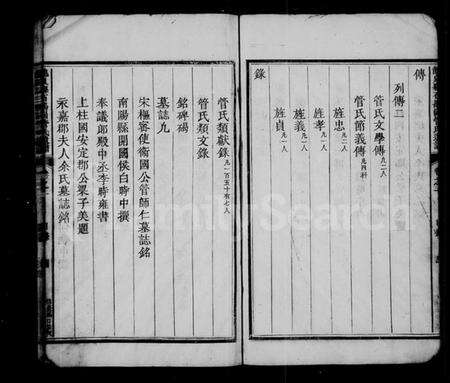 傳
列傳二
管氏文學傳 凡二人
管氏節義傳 凡四科
旌忠 凡二人
旌孝 凡一人
旌義 凡一人
旌貞 凡一人
錄
管氏類獻錄 凡一百五十有七人
管氏類文錄
銘碑碣
墓誌九
宋樞密使衛國公管師仁墓誌銘
南陽縣開國侯白時中撰
奉議郎殿中丞李時雍書
上柱國安定郡公梁子美題
永嘉郡夫人余氏墓誌銘
FamilySearch